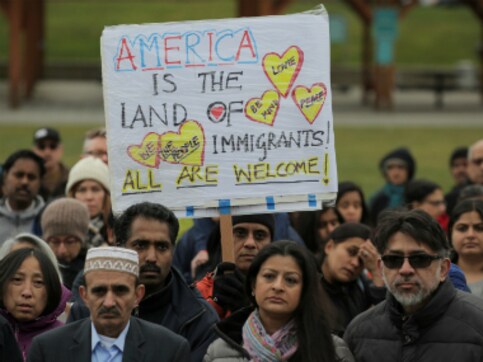 AMERICA
IS THE
LAND OF
IMMIGRANTS!
ALL ARE WELCOME!
LOVE
BE
PEACE
WE THE
PEOPLE